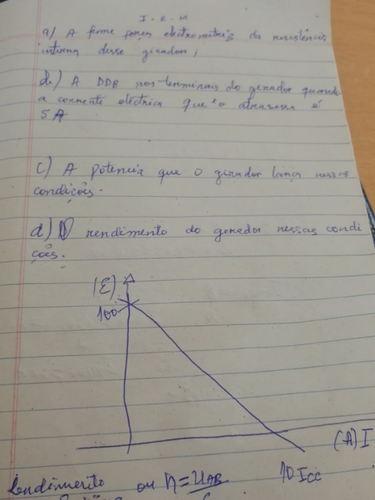 I. E. M
a) A forma força electromotriz da resistência
interna desse gerador;
b.) A DDP nos terminais do gerador quando
a corrente eléctrica que o atravessa é
5 A
c) A potência que o gerador lança nessas
condições.
d) O rendimento do gerador nessas condi
ções.
(E)
100
(A) I
10 Icc
Rendimento ou n = UAB